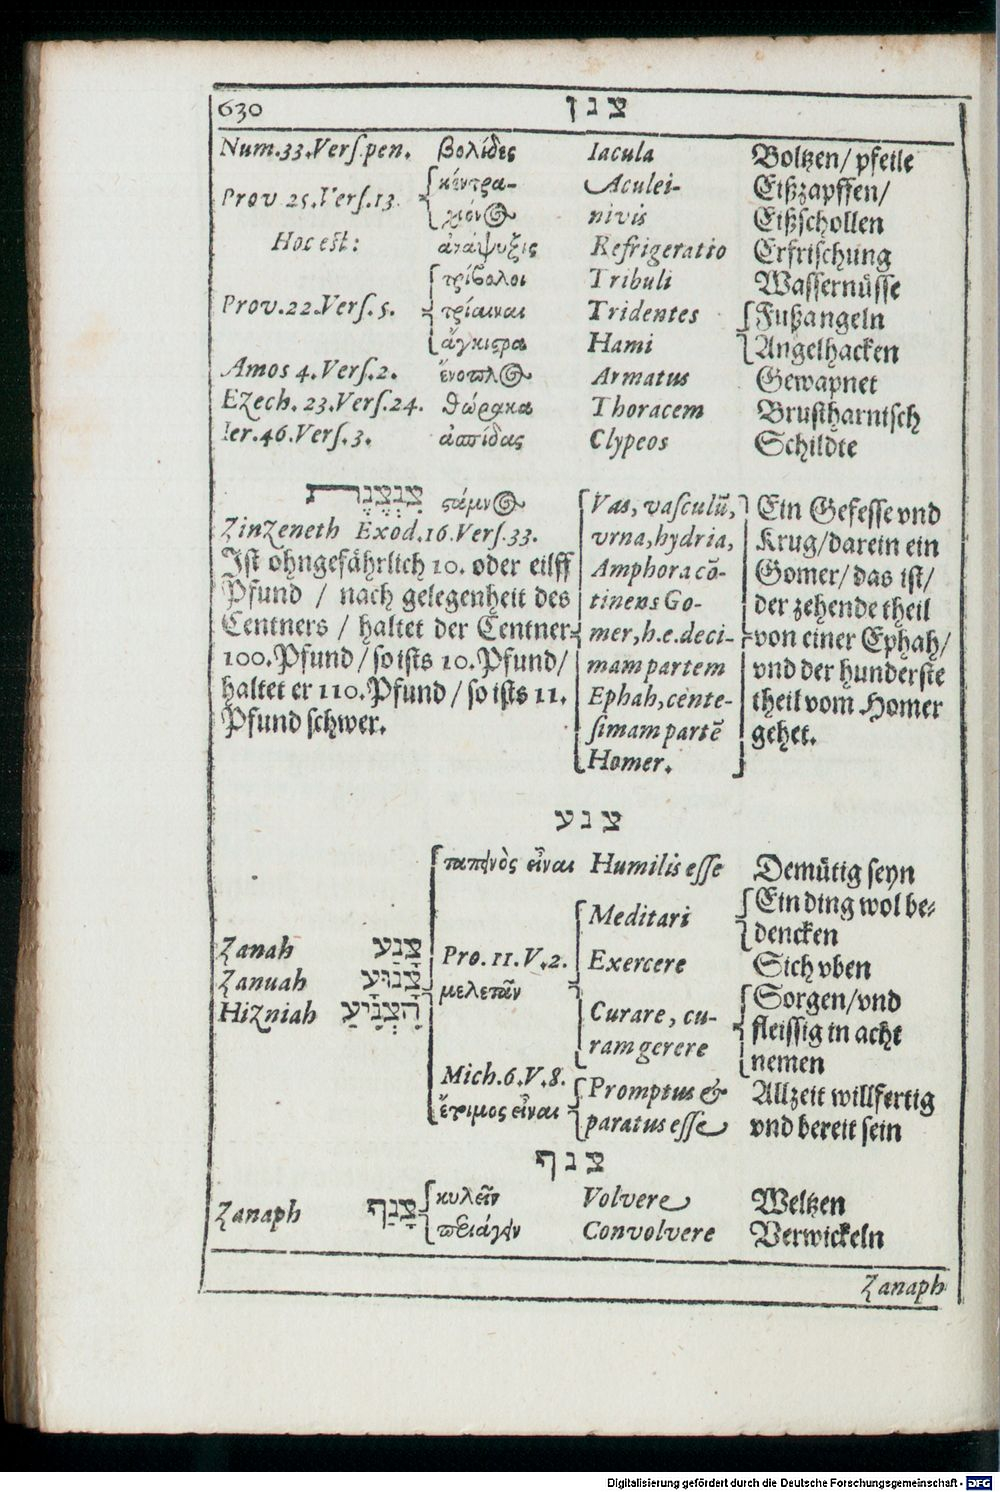 630 צנן
Num.33.Verſ.pen. βολίδες Iacula Boltzen/ pfeile
κέντρα- Aculei- Eißzapffen/
Prov 25.Verſ.13.
χιόν@ nivis Eißschollen
Hoc est: ἀνάψυξις Refrigeratio Erfrischung
τρίβολοι Tribuli Wassernüsse
Prov.22.Verſ.5. τρίαιναι Tridentes Fußangeln
ἄγκιςρα Hami Angelhacken
Amos 4.Verſ.2. ἔνοπλ@ Armatus Gewapnet
Ezech. 23.Verſ.24. θώρακα Thoracem Brustharnisch
Ier.46.Verſ.3. ἀσπίδας Clypeos Schildte
צִנְצֶנֶת ςάμν@ Vas, vaſculũ, Ein Gefesse vnd
Zinzeneth Exod.16.Verſ.33. vrna, hydria, Krug/darein ein
Ist ohngefährlich 10. oder eilff Amphora cõ- Gomer/ das ist/
Pfund / nach gelegenheit des tinens Go- der zehende theil
Centners / haltet der Centner mer, h.e. deci- von einer Ephah/
100. Pfund / so ists 10. Pfund/ mam partem vnd der hunderste
haltet er 110. Pfund / so ists 11. Ephah, cente- theil vom Homer
Pfund schwer. ſimam partẽ gehet.
Homer.
צנע
ταπεινὸς εἶναι Humilis eſſe Demütig seyn
Meditari Ein ding wol be-
dencken
Zanah צָנַע Pro. 11.V.2. Exercere Sich vben
Zanuah צָנוּעַ μελετᾶν Sorgen/vnd
Hizniah הִצְנִיעַ Curare, cu- fleissig in acht
ram gerere nemen
Mich.6.V.8. Promptus & Allzeit willfertig
ἕτιμος εἶναι paratus eſſe vnd bereit sein
צנף
κυλεῖν Volvere Weltzen
Zanaph צָנַף
περιάγειν Convolvere Verwickeln
Zanaph
Digitalisierung gefördert durch die Deutsche Forschungsgemeinschaft - DFG